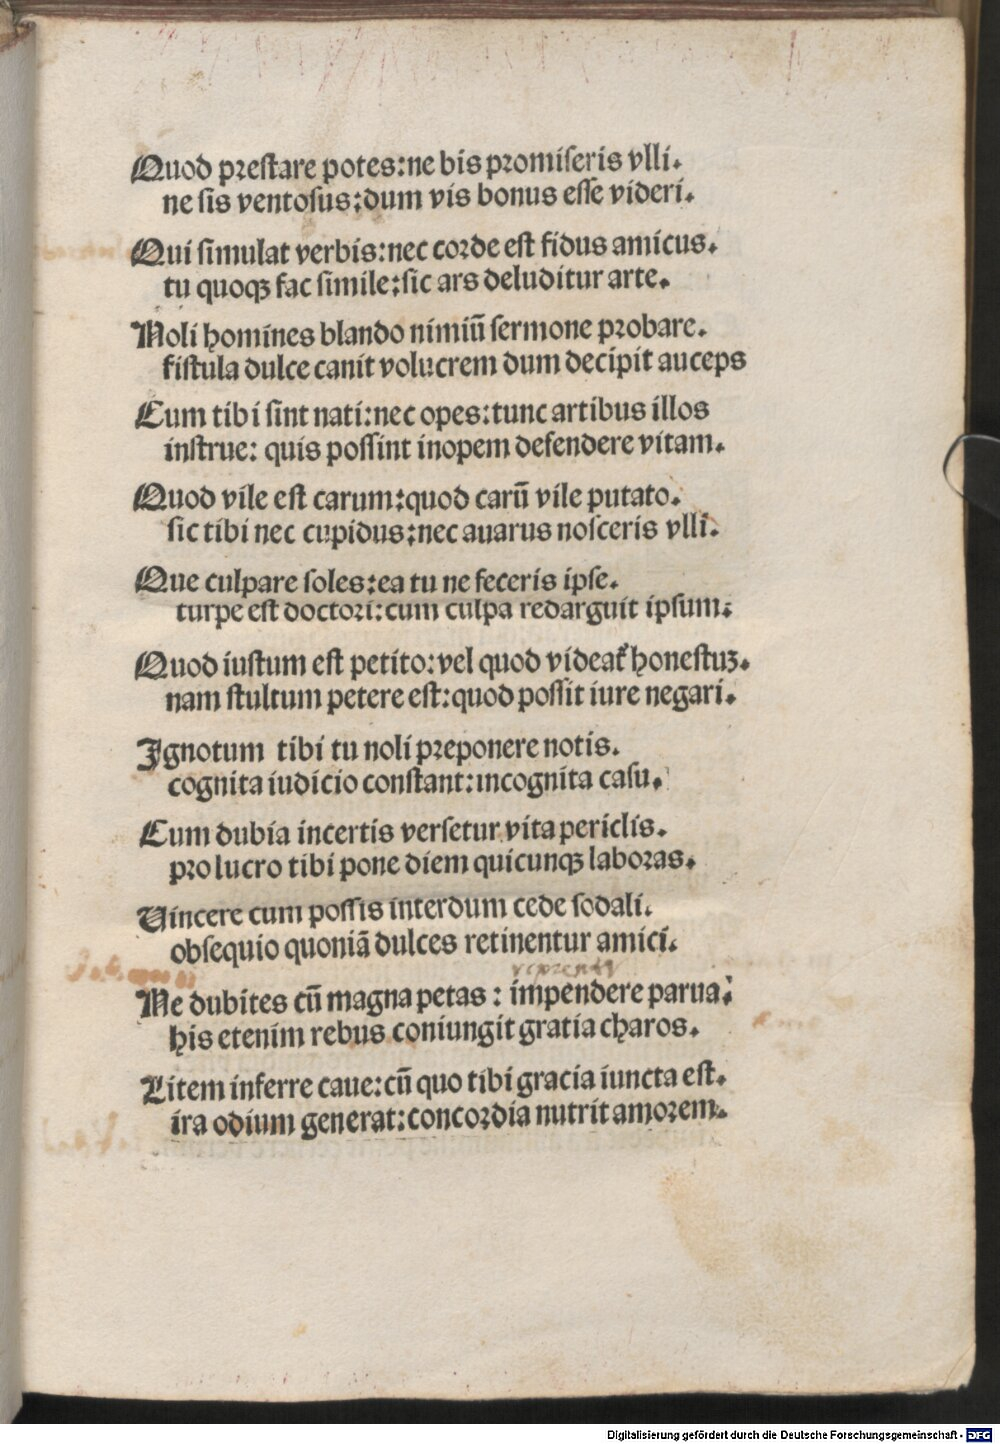 Quod prestare potes:ne bis promiseris vlli.
ne sis ventosus:dum vis bonus esse videri.
Qui simulat verbis:nec corde est fidus amicus.
tu quoqꝫ fac simile:sic ars deluditur arte.
Noli homines blando nimiū sermone probare.
fistula dulce canit volucrem dum decipit auceps
Cum tibi sint nati:nec opes:tunc artibus illos
instrue: quis possint inopem defendere vitam.
Quod vile est carum:quod carū vile putato.
sic tibi nec cupidus:nec auarus nosceris vlli.
Que culpare soles:ea tu ne feceris ipse.
turpe est doctori:cum culpa redarguit ipsum.
Quod iustum est petito:vel quod videat᷑ honestuꝫ.
nam stultum petere est:quod possit iure negari.
Ignotum tibi tu noli preponere notis.
cognita iudicio constant:incognita casu.
Cum dubia incertis versetur vita periclis.
pro lucro tibi pone diem quicunqꝫ laboras.
Vincere cum possis interdum cede sodali.
obsequio quoniā dulces retinentur amici.
Ne dubites cū magna petas : impendere parua:
his etenim rebus coniungit gratia charos.
Litem inferre caue:cū quo tibi gracia iuncta est.
ira odium generat:concordia nutrit amorem.
Digitalisierung gefördert durch die Deutsche Forschungsgemeinschaft - DFG